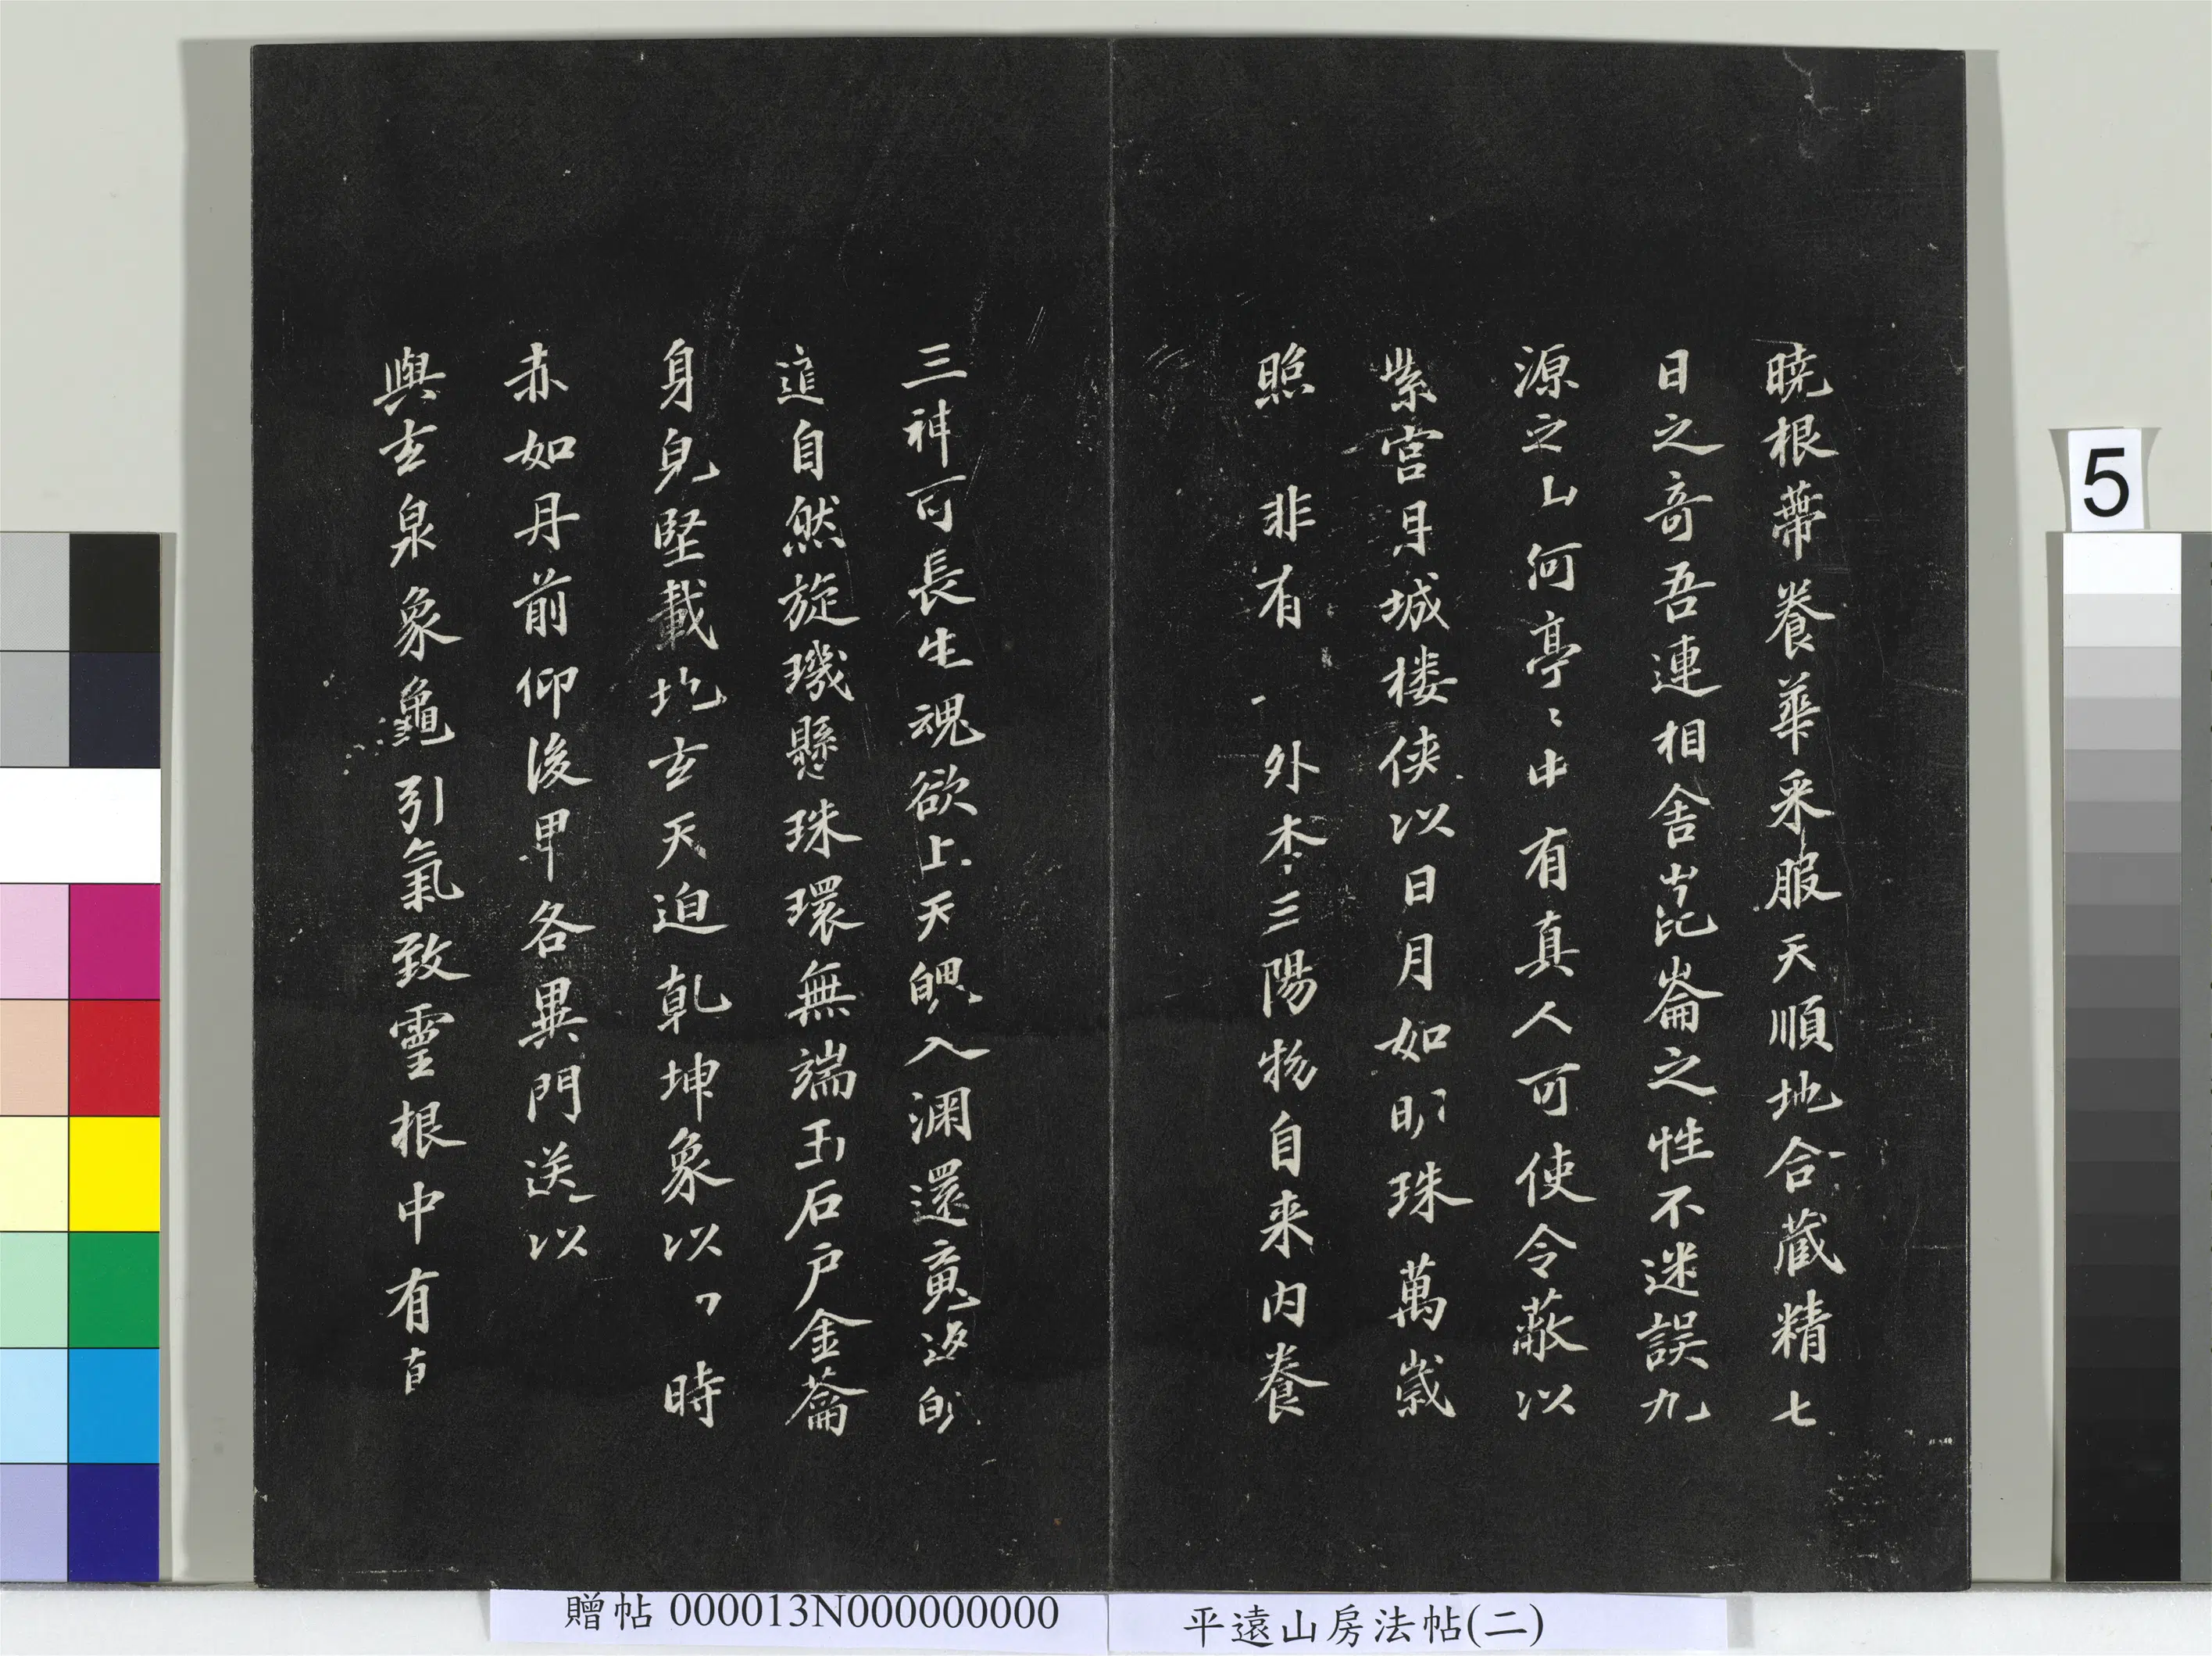 曉根蔕養華采服天順地合藏精七
日之奇吾連相舍崑崙之性不迷誤九
源之山何亭〻中有真人可使令蔽以
紫宮丹城楼侠以日月如明珠萬歲
照 非有 外本三陽物自来内養
三神可長生魂欲上天魄入渊還魂返
自然旋璣懸珠環無端玉石户金籥
身皃堅載地玄天迫乾坤象以 時
赤如丹前仰後卑各異門送以
與玄泉象龜引氣致靈根中有真
贈帖 000013N000000000
平遠山房法帖(二)
5